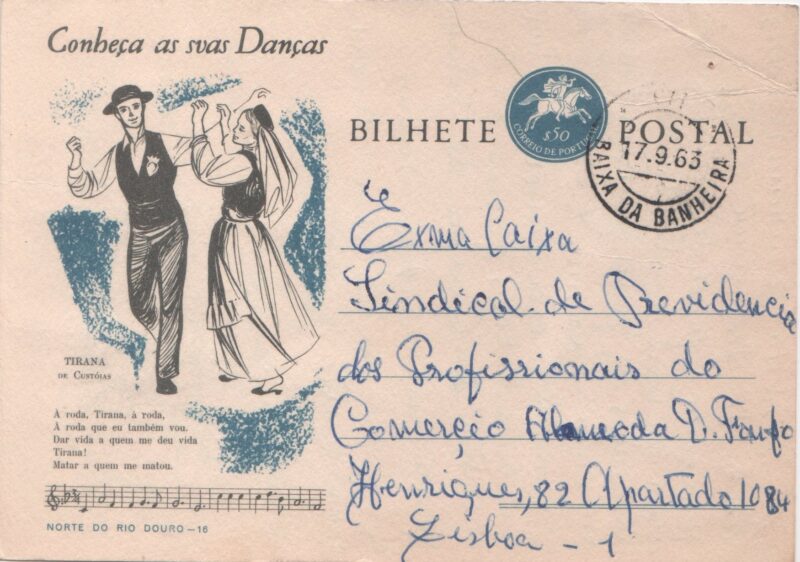 Conheça as suas Danças
TIRANA
DE CUSTÓIAS
À roda, Tirana, à roda,
À roda que eu também vou.
Dar vida a quem me deu vida
Tirana!
Matar a quem me matou.
NORTE DO RIO DOURO — 16
BILHETE POSTAL
$50
CORREIO DE PORTUGAL
17.9.63
BAIXA DA BANHEIRA
Exma Caixa
Sindical de Previdencia
dos Profissionais do
Comerçio Alameda D.
Henriques, 82 Apartado 1084
Lisboa - 1